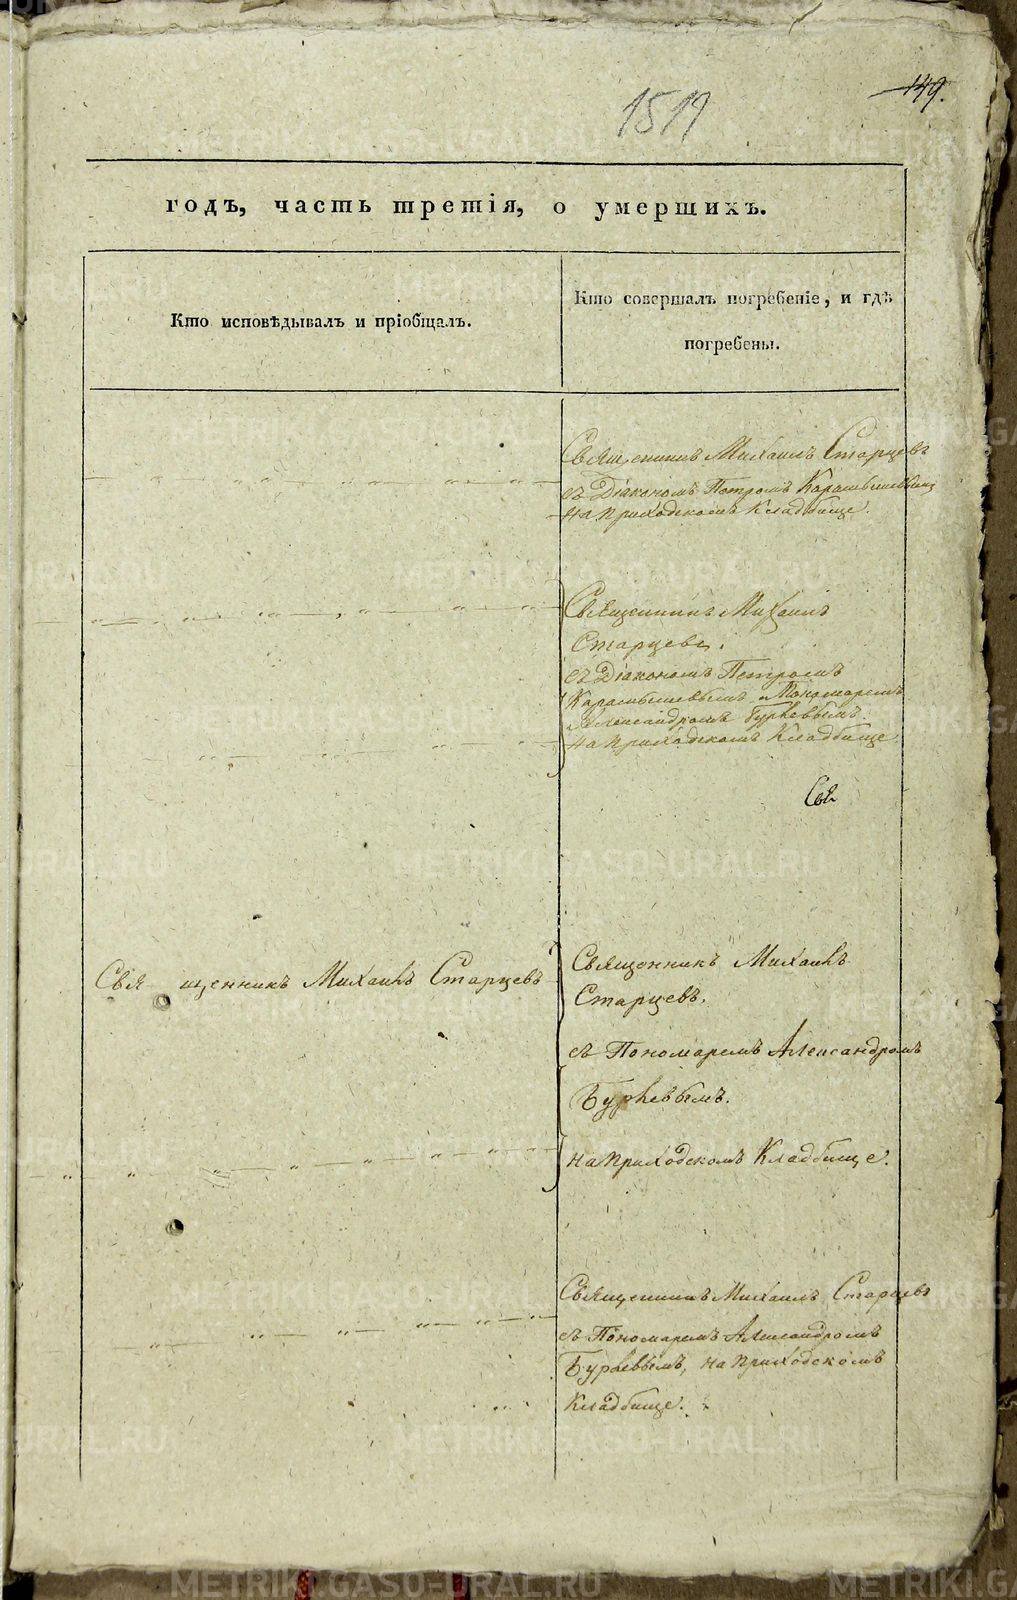 149.
1519
годъ, часть третія, о умершихъ.
Кто исповѣдывалъ и пріобщалъ.
Кто совершалъ погребеніе, и гдѣ
погребены.
Священникъ Михаилъ Старцевъ
съ Діакономъ Петромъ Карамышевымъ
на приходскомъ Кладбище.
Священникъ Михаилъ
Старцевъ.
съ Діакономъ Петромъ
Карамышевымъ и Пономаремъ
Александромъ Бурневымъ.
на приходскомъ Кладбище
Свя
Священникъ Михаилъ Старцевъ
Священникъ Михаилъ
Старцевъ.
съ Пономаремъ Александромъ
на приходскомъ Кладбище.
Священникъ Михаилъ Старцевъ
съ Пономаремъ Александромъ
на приходскомъ
Кладбище.
METRIKI.GASO-URAL.RU